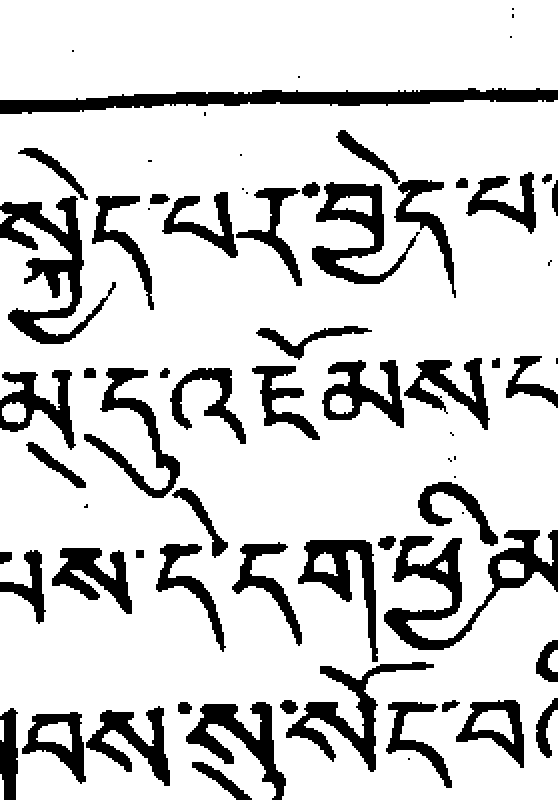 སྐྱེད་པར་བྱེད་པ
མུ་དུ་འཇོམས་ད
པས་དེ་དག་ཕྱི་མ
བས་སུ་སོང་བ